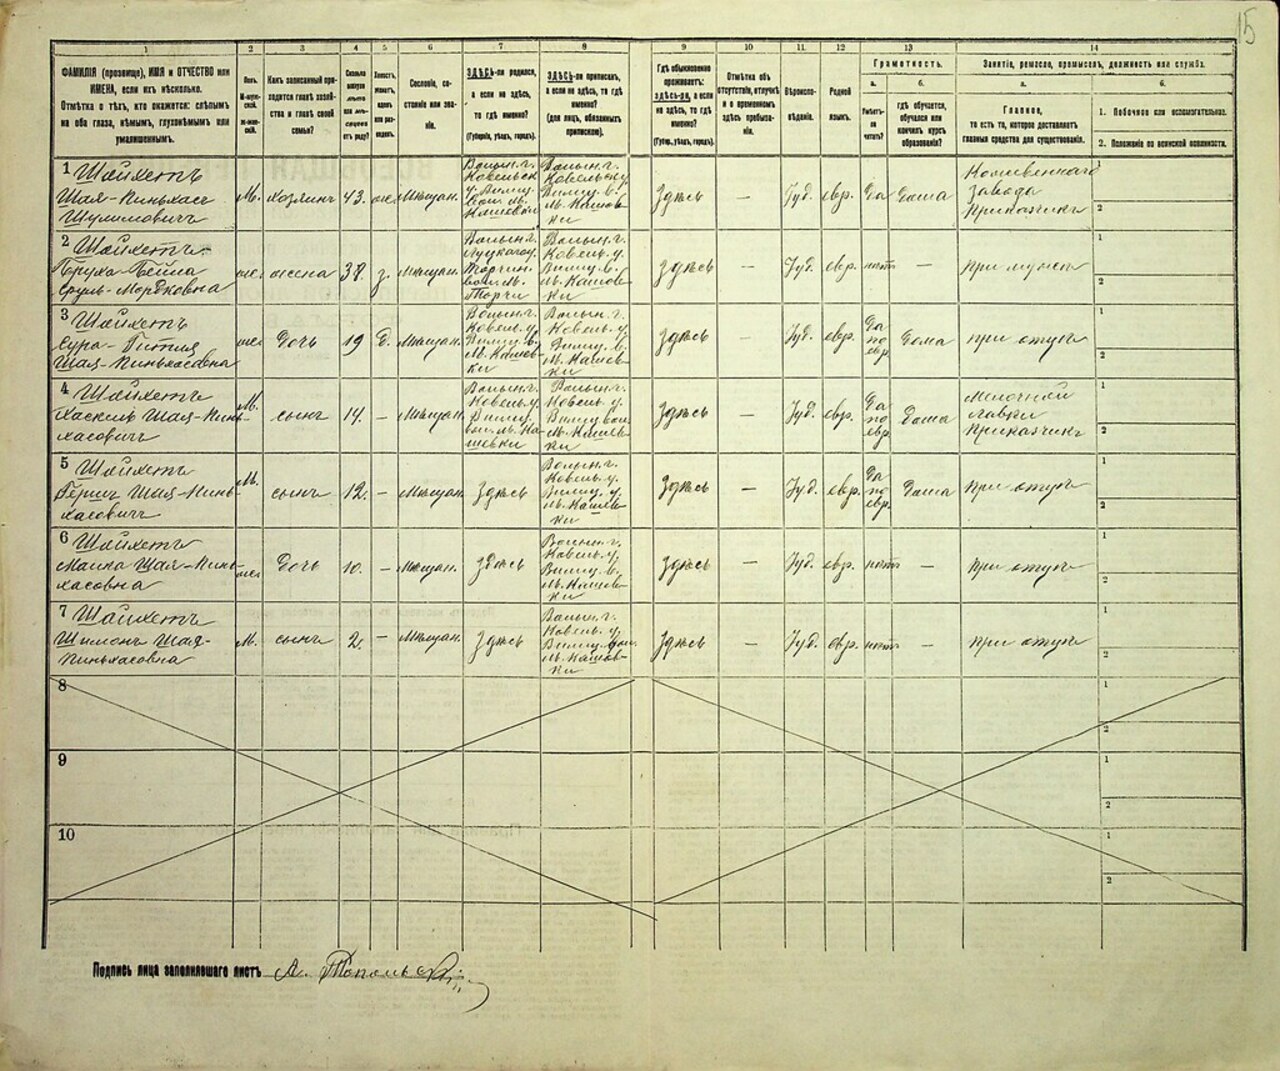 15
1
2
3
4
5
6
7
8
9
10
11
12
13
14
ФАМИЛІЯ (прозвище), ИМЯ и ОТЧЕСТВО или
ИМЕНА, если ихъ нѣсколько.
Отмѣтка о тѣхъ, кто окажется: слѣпымъ
на оба глаза, нѣмымъ, глухонѣмымъ или
умалишеннымъ.
Полъ.
М-мужской.
Ж-женскій.
Какъ записанный при-
ходится главѣ хозяй-
ства и главѣ своей
семьи?
Сколько
минуло
лѣтъ
отъ роду?
Холостъ,
женатъ,
вдовъ
или раз-
веденъ.
Сословіе, со-
стояніе или зва-
ніе.
ЗДѢСЬ-ли родился,
а если не здѣсь,
то гдѣ именно?
(Губернія, уѣздъ, городъ).
ЗДѢСЬ-ли приписанъ,
а если не здѣсь, то гдѣ
именно?
(для лицъ, обязанныхъ
припискою).
Гдѣ обыкновенно
проживаетъ:
здѣсь-ли, а если
не здѣсь, то гдѣ
именно?
(Губер., уѣздъ, городъ).
Отмѣтка объ
отсутствіи, отлучкѣ
и о временномъ
здѣсь пребыва-
ніи.
Вѣроиспо-
вѣданіе.
Родной
языкъ.
Грамотность.
а.
б.
Умѣетъ-
ли
читать?
гдѣ обучается,
обучался или
кончилъ курсъ
образованія?
Занятіе, ремесло, промыселъ, должность или служба.
а.
б.
Главное,
то есть то, которое доставляетъ
главныя средства для существованія.
1. Побочное или вспомогательное.
2. Положеніе по воинской повинности.
1 Шайхетъ
Шая-Пиньхас
Шулимовичъ
М. хозяинъ 43. ж. Мѣщан.
Волын. г.
Ковельск.
м. Кашевки
Волын. г.
Здѣсь — Іуд. евр. Да Дома
Завода
Приказчикъ
1
2
2 Шайхетъ
Бруха-Бейла
Сруль-Мордковна
жен. жена 38. з. Мѣщан.
Волын. г.
Волын. г.
Ковель. у.
м. Кашев-
ки
Здѣсь — Іуд. евр. нѣтъ — при мужѣ
1
2
3 Шайхетъ
Сура-Гитля
Шая-Пиньхасовна
жен. Дочь 19 д. Мѣщан.
Волын. г.
Ковель. у.
м. Кашев-
ки
Волын. г.
Ковель. у.
м. Кашев-
ки
Здѣсь — Іуд. евр. Да по евр. Дома при отцѣ
1
2
4 Шайхетъ
Хаскель Шая-Пинь-
хасовичъ
М. сынъ 14. — Мѣщан.
Волын. г.
Ковель. у.
м. Ка-
шевки
Волын. г.
Ковель. у.
м. Кашев-
ки
Здѣсь — Іуд. евр. Да по евр. Дома
Мелочной
лавки
Приказчикъ
1
2
5 Шайхетъ
Гершъ Шая-Пинь-
хасовичъ
М. сынъ 12. — Мѣщан. Здѣсь
Волын. г.
Ковель. у.
м. Кашев-
ки
Здѣсь — Іуд. евр. Да по евр. Дома при отцѣ
1
2
6 Шайхетъ
Малка Шая-Пинь-
хасовна
жен. Дочь 10. — Мѣщан. Здѣсь
Волын. г.
Ковель. у.
м. Кашев-
ки
Здѣсь — Іуд. евр. нѣтъ — при отцѣ
1
2
7 Шайхетъ
Шимонъ Шая-
Пиньхасовна
М. сынъ 2. — Мѣщан. Здѣсь
Волын. г.
Ковель. у.
м. Кашев-
ки
Здѣсь — Іуд. евр. нѣтъ — при отцѣ
1
2
8
1
2
9
1
2
10
1
2
Подпись лица заполнившаго листъ А. Топольскій